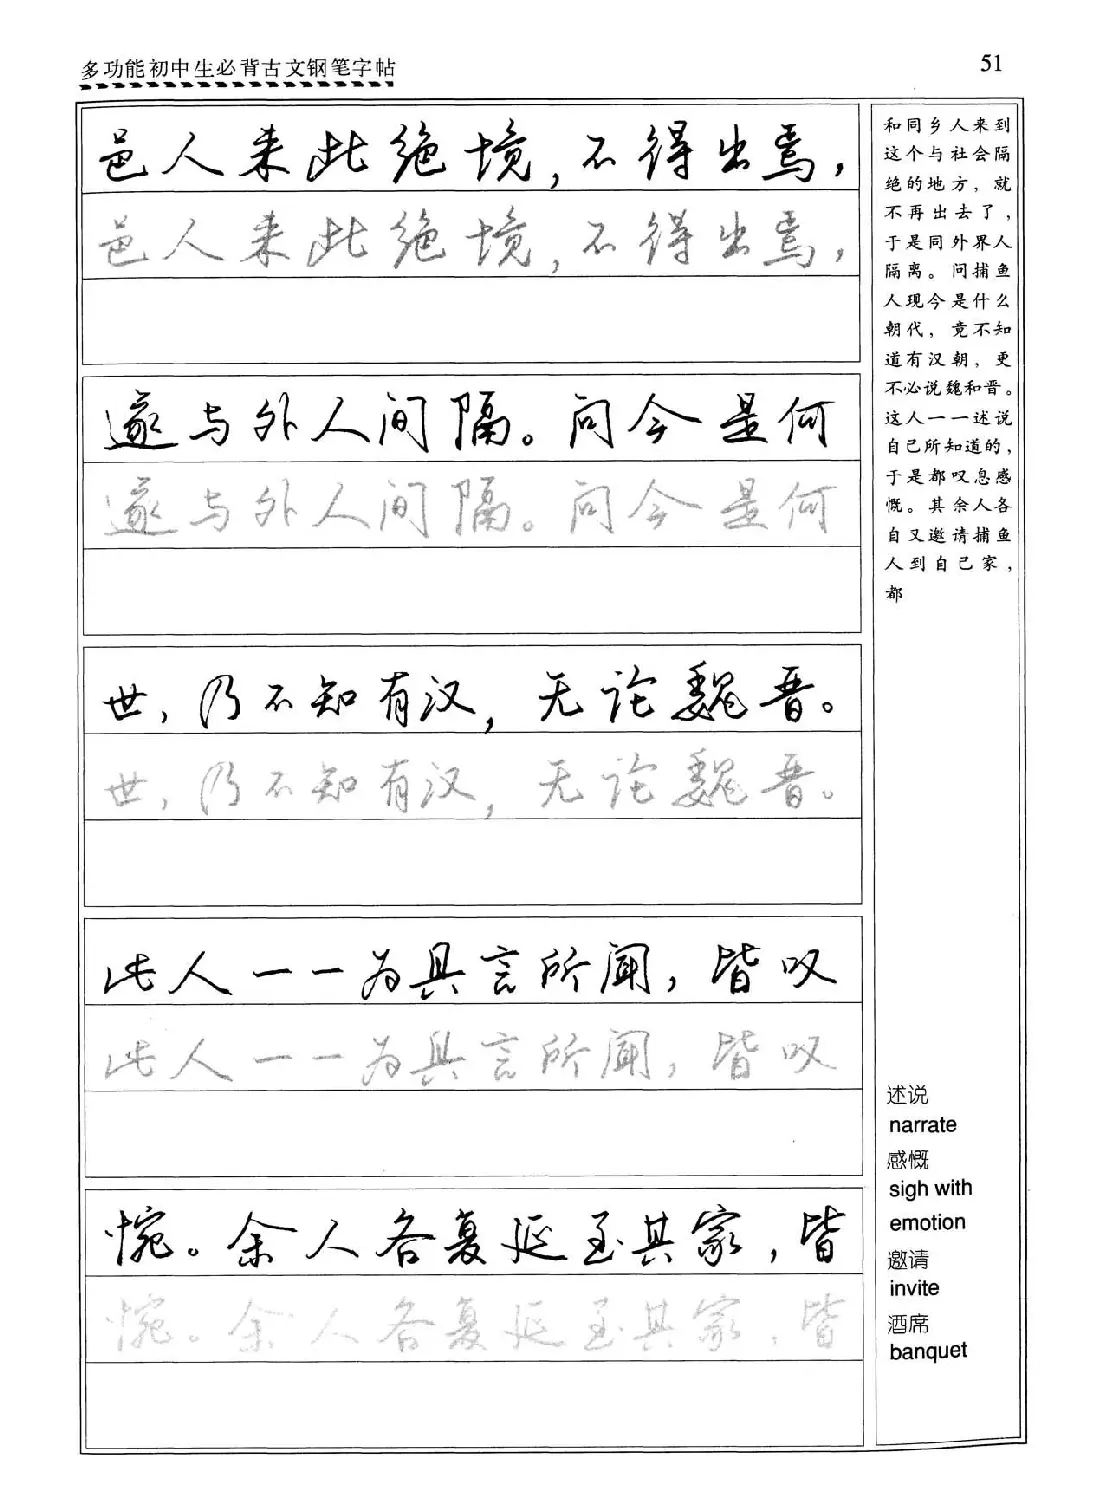 多功能初中生必背古文钢笔字帖
51
邑人来此绝境，不得出焉，
邑人来此绝境，不得出焉，
遂与外人间隔。问今是何
遂与外人间隔。问今是何
世，乃不知有汉，无论魏晋。
世，乃不知有汉，无论魏晋。
此人一一为具言所闻，皆叹
此人一一为具言所闻，皆叹
惋。余人各复延至其家，皆
惋。余人各复延至其家，皆
和同乡人来到
这个与社会隔
绝的地方，就
不再出去了，
于是同外界人
隔离。问捕鱼
人现今是什么
朝代，竟不知
道有汉朝，更
不必说魏和晋。
这人一一述说
自己所知道的，
于是都叹息感
慨。其余人各
自又邀请捕鱼
人到自己家，
都
述说
narrate
感慨
sigh with
emotion
邀请
invite
酒席
banquet